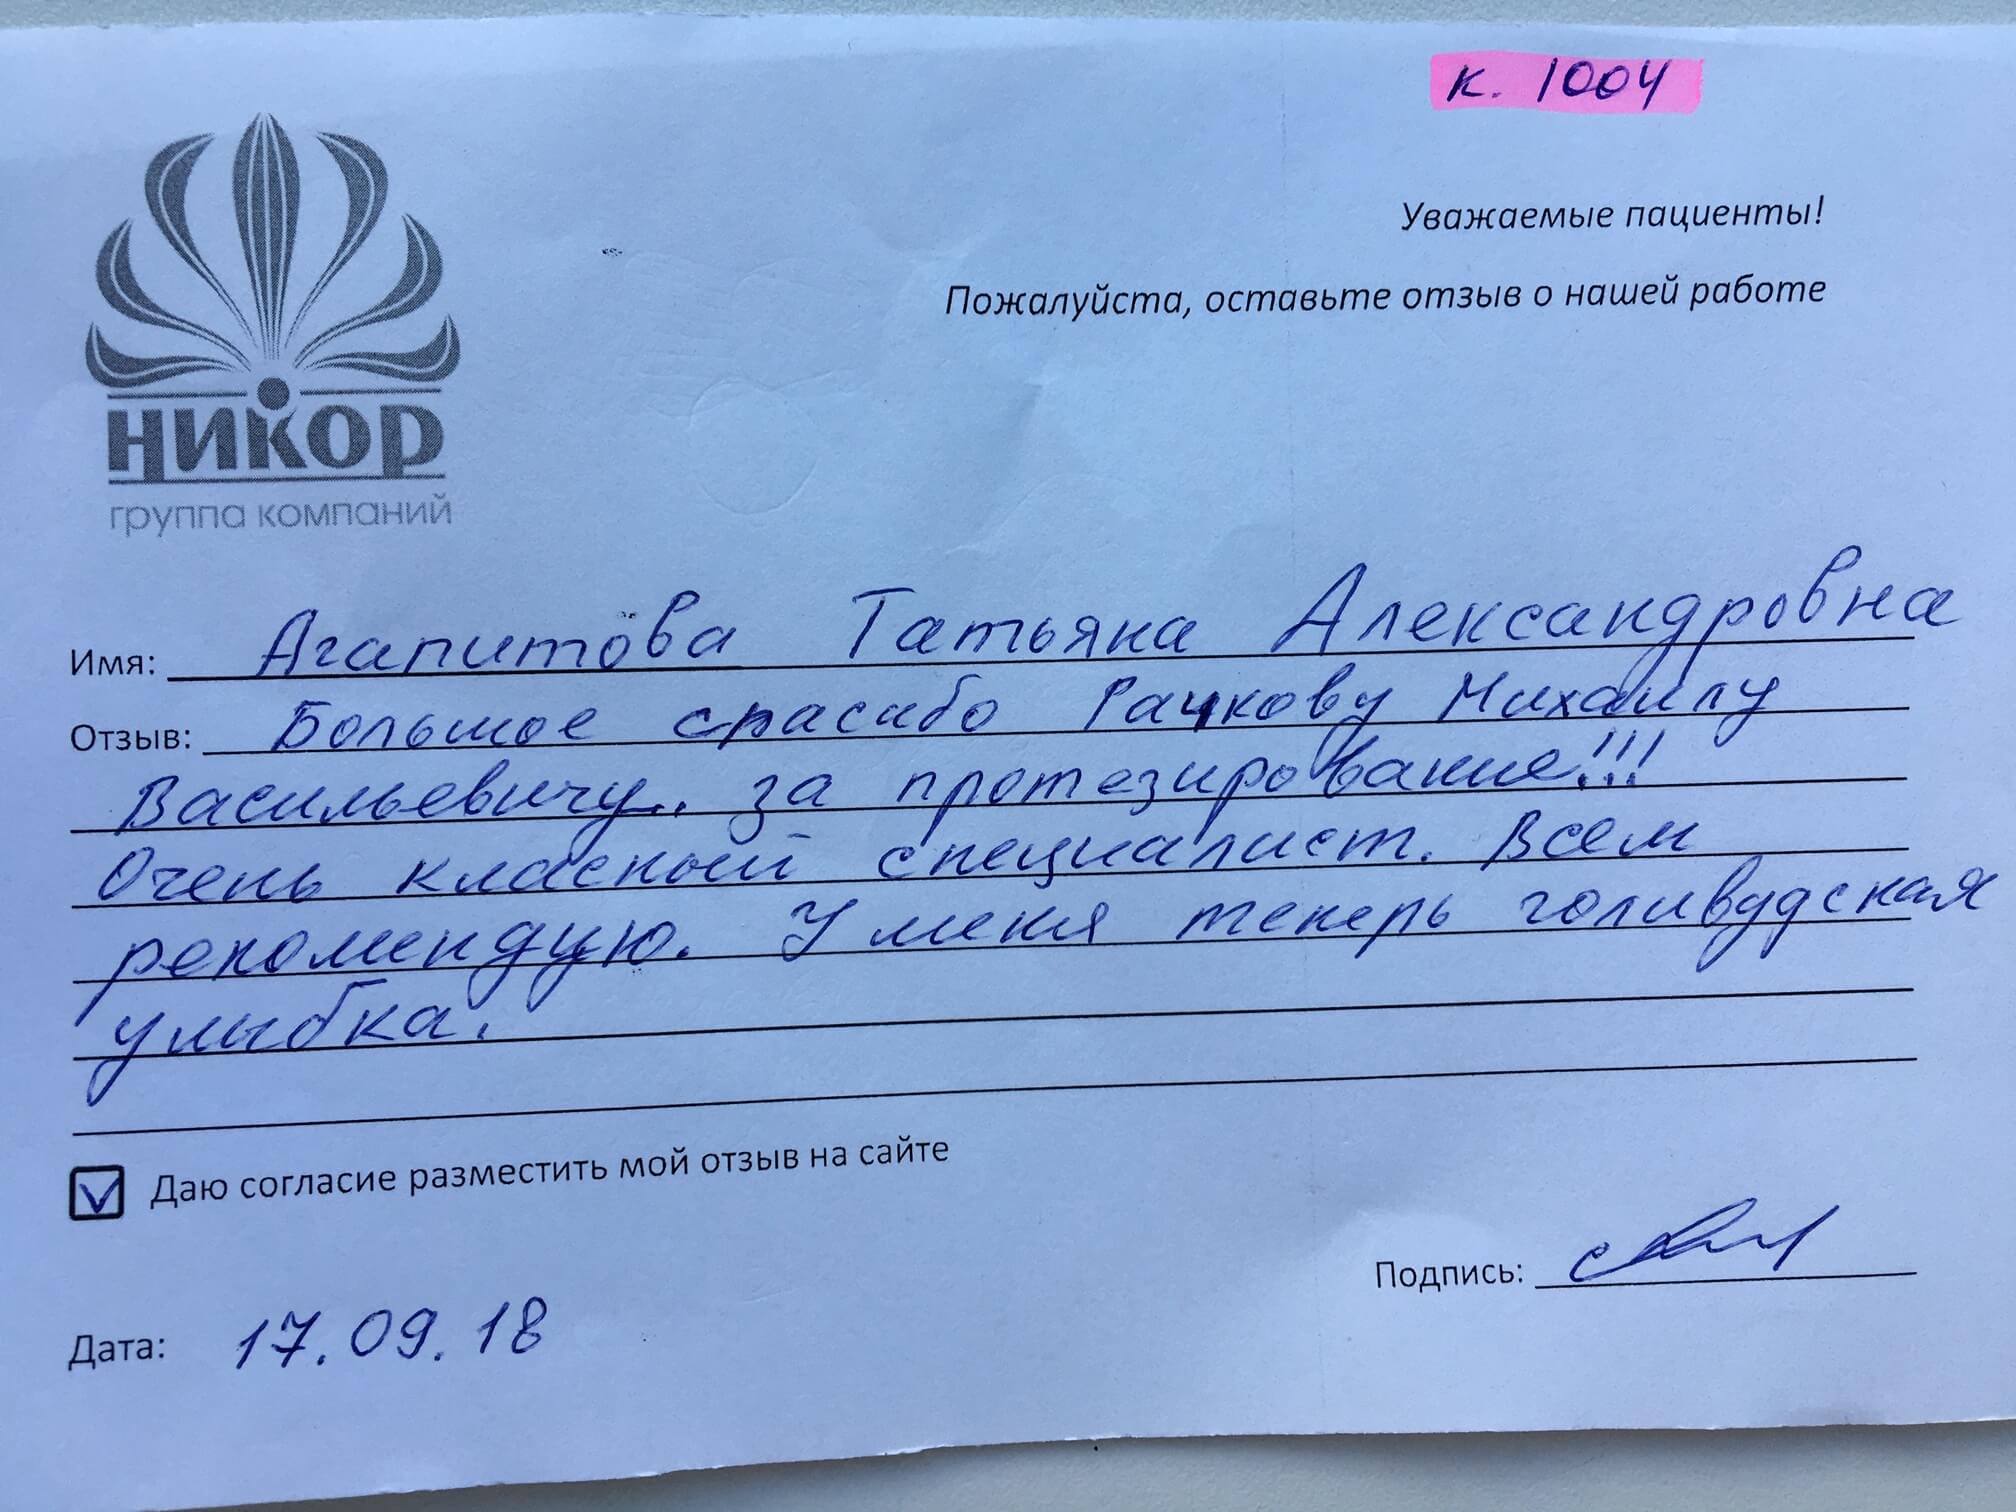 к. 1004
Уважаемые пациенты!
Пожалуйста, оставьте отзыв о нашей работе
никор
группа компаний
Имя: Агапитова Татьяна Александровна
Отзыв: Большое спасибо Рачкову Михаилу
Васильевичу.. за протезирование!!!
Очень класный специалист. Всем
рекомендую. У меня теперь голивудская
улыбка.
Даю согласие разместить мой отзыв на сайте
Подпись:
Дата: 17.09.18